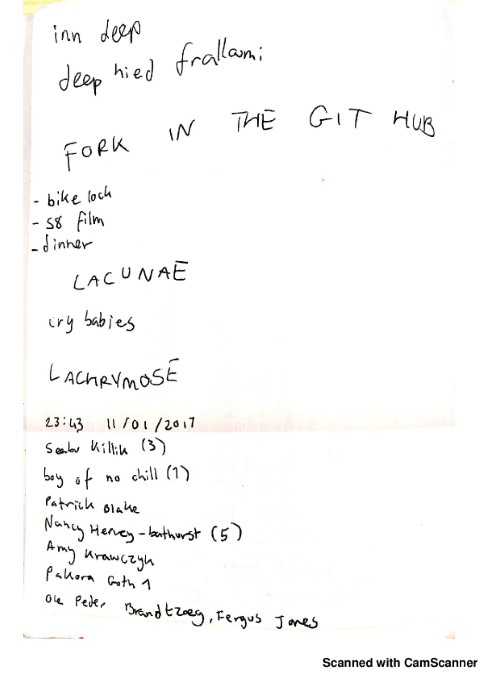 inn deep
deep hied frallami
FORK IN THE GIT HUB
- bike lock
- S8 film
- dinner
LACUNAE
cry babies
LACHRYMOSE
23:43 11/01/2017
Killik (3)
boy of no chill (1)
Patrick Blake
Nancy Hervey-bathurst (5)
Amy Krawczyk
Pakora Goth 1
Ole Peder Brandtzaeg, Fergus Jones
Scanned with CamScanner